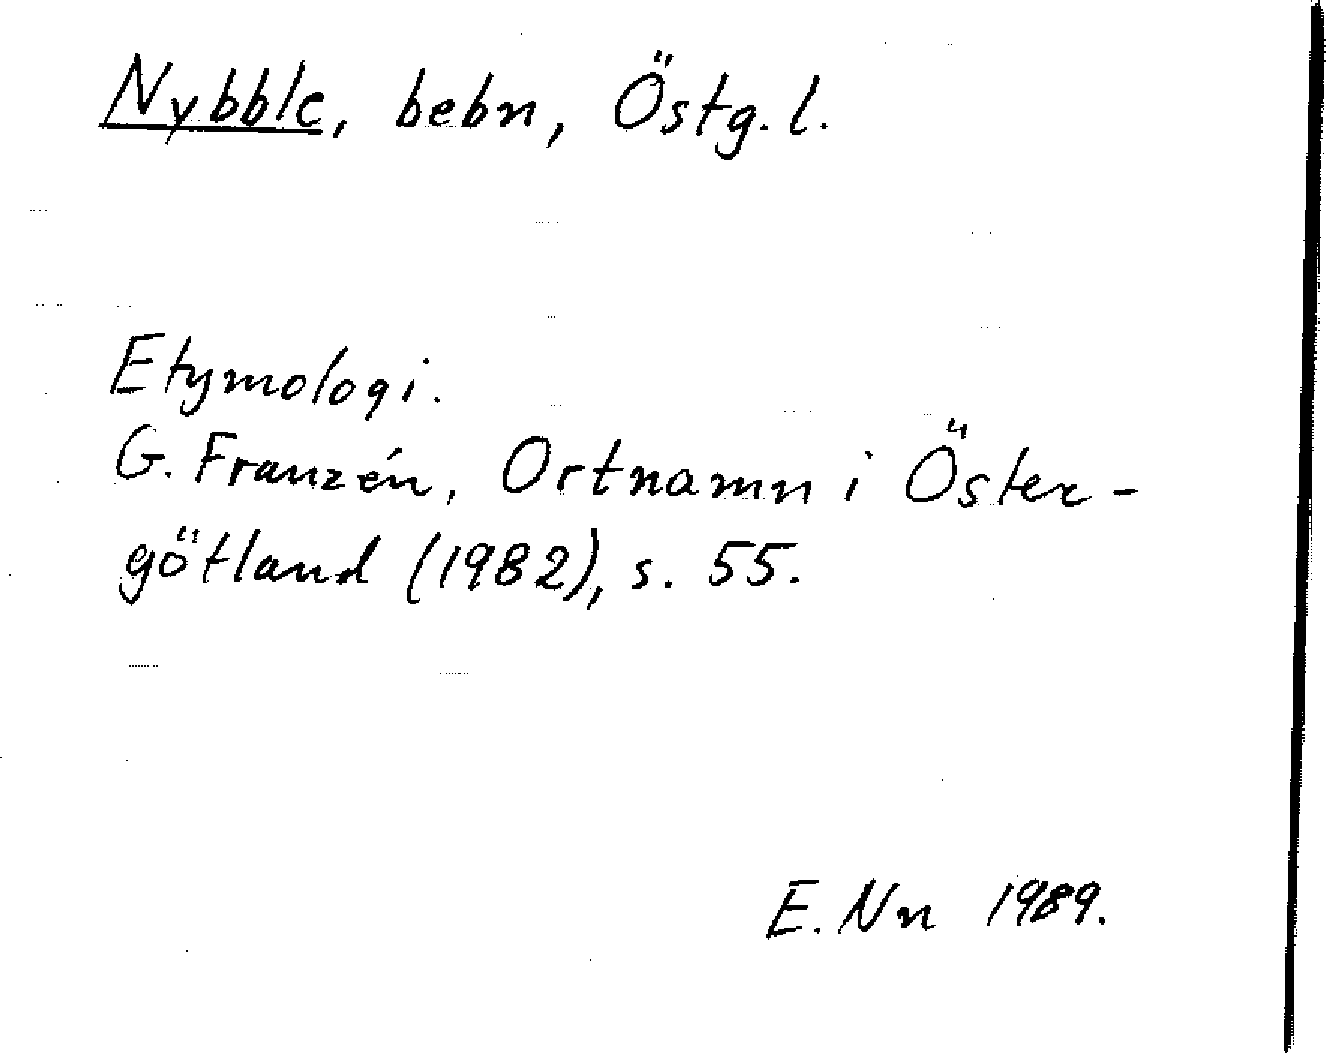 Nybble, bebn, Östg. l.
Etymologi.
G. Franzén, Ortnamn i Öster-
götland (1982), s. 55.
E. Nn 1989.